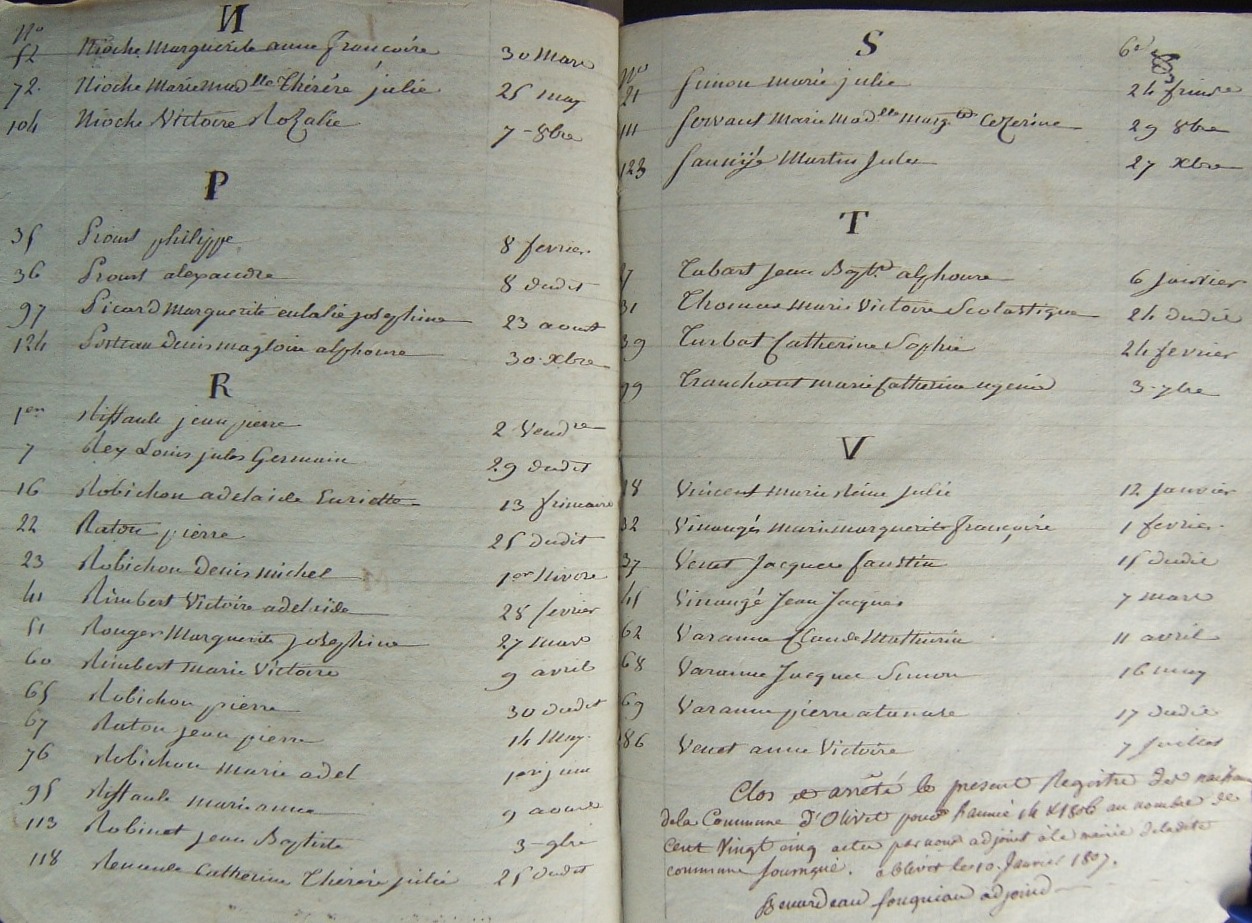 N
No
52 Nioche Marguerite anne françoise 30 Mars
72. Nioche Marie Mad lle Thérése julie 25 may
104 Nioche Victoire Rozalie 7 - 8bre
P
35 Proust philippe 8 fevrier
36 Proust alexandre 8 dudit
97 Picard Marguerite eulalie josephine 23 aoust
124 denis magloire alphonse 30 Xbre
R
1er Riffault jean pierre 2 Vendre
7 Rey Louis jules Germain 29 dudit
16 Robichon adelaide Euriette 13 frimaire
22 Raton pierre 25 dudit
23 Robichon Denis Michel 1er Nivose
41 Rimbert Victoire adelaïde 25 fevrier
51 Rouger Marguerite josephine 27 mars
60 Rimbert marie Victoire 9 avril
65 Robichon pierre 30 dudit
67 Raton jean pierre 14 May
76 Robichon marie adel 1er juin
95 Riffault marie anne 9 aoust
113 Robinet jean Baptiste 3 - 9bre
118 Catherine Thérése julie 25 dudit
S
No
21 Simon marie julie 24 frimre
111 Servant Marie Mad lle Marg te Cezerine 29 8bre
123 Martin Jules 27 Xbre
T
Tabart Jean Bapt alphonse 6 janvier
31 Thomas Marie Victoire Scolastique 24 dudit
39 Turbat Catherine Sophie 24 fevrier
99 Tranchant marie Catherine ugenie 3 - 7bre
V
18 Vincent marie Reine julie 12 janvier
32 marie marguerite françoise 1 fevrier
37 Venet Jacques faustin 15 dudit
45 Jean Jacques 7 mars
62 Varanne Claude Mathurin 11 avril
68 Varanne Jacques Simon 16 may
69 Varanne pierre 17 dudit
86 Venet anne Victoire 7 juillet
Clos et arrêté le present Registre des
de la Commune d'Olivet pour l'année 14 & 1806 au nombre de
cent Vingt cinq actes par nous adjoint à la mairie de ladite
commune soussigné. a olivet le 10 Janvier 1807.
adjoind